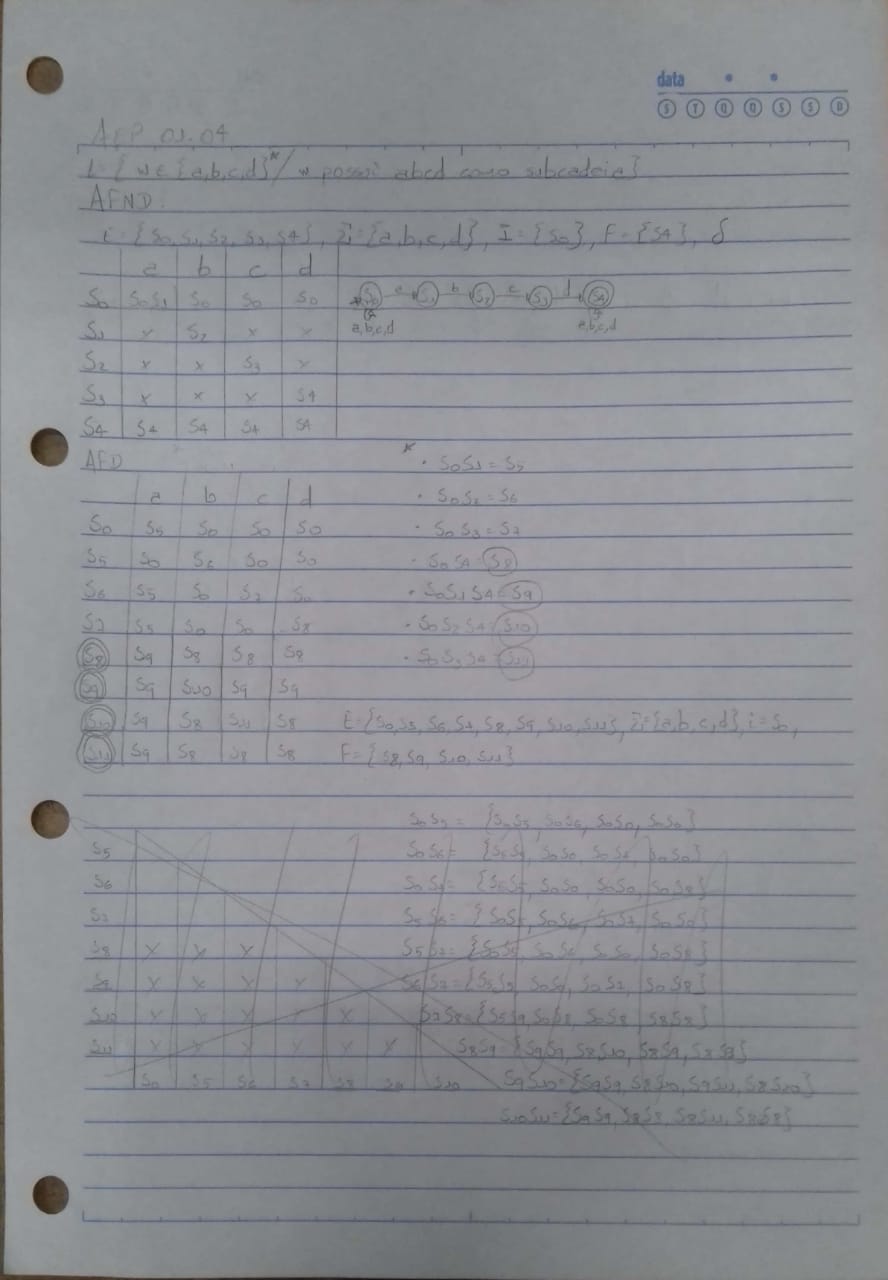 data
S T Q Q S S D
AFP 01.04
L={ w ∈ {a,b,c,d}* / w possui abcd como subcadeia}
AFND.
E={S0, S1, S2, S3, S4}, Σ={a,b,c,d}, I={S0}, F={S4}, δ
a b c d
S0 S0S1 S0 S0 S0
S1 x S2 x x
S2 x x S3 x
S3 x x x S4
S4 S4 S4 S4 S4
S0 a S1 b S2 c S3 d S4
a,b,c,d a,b,c,d
AFD
a b c d
S0 S5 S0 S0 S0
S5 S0 S6 S0 S0
S6 S5 S0 S7 S0
S7 S5 S0 S0 S8
S8 S9 S8 S8 S8
S9 S9 S10 S9 S9
S10 S9 S8 S11 S8
S11 S9 S8 S8 S8
*
· S0S1 = S5
· S0S2 = S6
· S0S3 = S7
· S0S4 = S8
· S0S1S4 = S9
· S0S2S4 = S10
· S0S3S4 = S11
E={S0, S5, S6, S7, S8, S9, S10, S11}, Σ={a,b,c,d}, i=S0,
F={S8, S9, S10, S11}
S5
S6
S7
S8 x x x
S9 x x x x
S10 x x x x x
S11 x x x x x x
S0 S5 S6 S7 S8 S9 S10
S0S5 = {S0S5, S0S6, S0S0, S0S0}
S0S6 = {S5S5, S0S0, S0S7, S0S0}
S0S7 = {S5S5, S0S0, S0S0, S0S8}
S5S6 = {S0S5, S0S6, S0S7, S0S0}
S5S7 = {S0S5, S0S6, S0S0, S0S8}
S6S7 = {S5S5, S0S0, S0S7, S0S8}
S7S8 = {S5S9, S0S8, S0S8, S8S8}
S8S9 = {S9S9, S8S10, S8S9, S8S9}
S9S10 = {S9S9, S8S10, S9S11, S8S10}
S10S11 = {S9S9, S8S8, S8S11, S8S8}